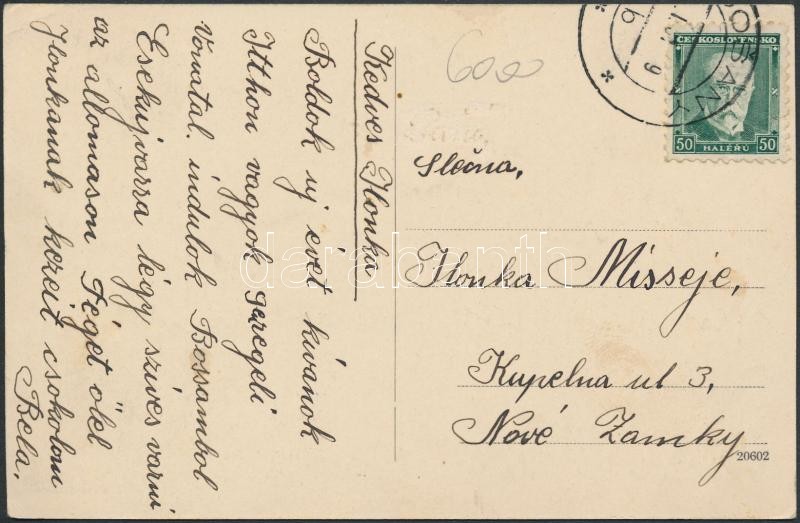 Kedves Ilonka
Boldok uj évet kivanok
Itthon vagyok geregeli
Vonatal. indulok Bossambol
Ersekujvarra légy szives varni
az allomason Téget ölel
Ilonkanak kezeit csokolom
Bela.
6000
ČESKOSLOVENSKO
50 HALÉŘŮ 50
Slečna,
Ilonka Misseje,
Kupelna ul 3,
Nové Zamky
20602
darabanth